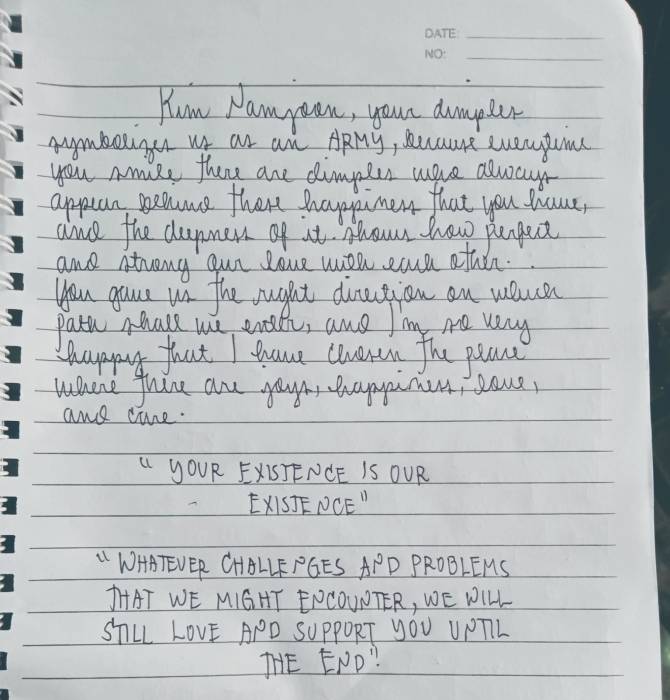 DATE:
NO:
Kim Namjoon, your dimples
symbolizes us as an ARMY, because everytime
you smile there are dimples were always
appear behind those happiness that you have,
and the deepness of it shows how perfect
and strong our love with each other.
You gave us the right direction on which
path shall we enter, and I'm so very
happy that I have chosen the place
where there are joys, happiness, love,
and care.
" YOUR EXISTENCE IS OUR
EXISTENCE"
" WHATEVER CHALLENGES AND PROBLEMS
THAT WE MIGHT ENCOUNTER, WE WILL
STILL LOVE AND SUPPORT YOU UNTIL
THE END".